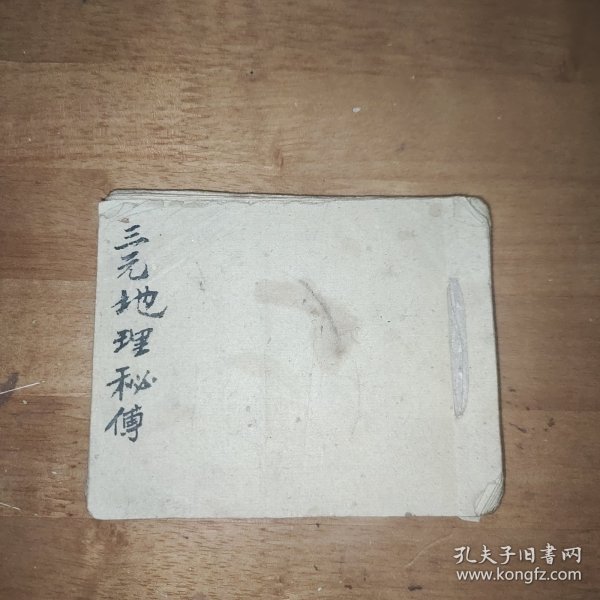 三元地理秘傳
孔夫子旧書网
www.kongfz.com